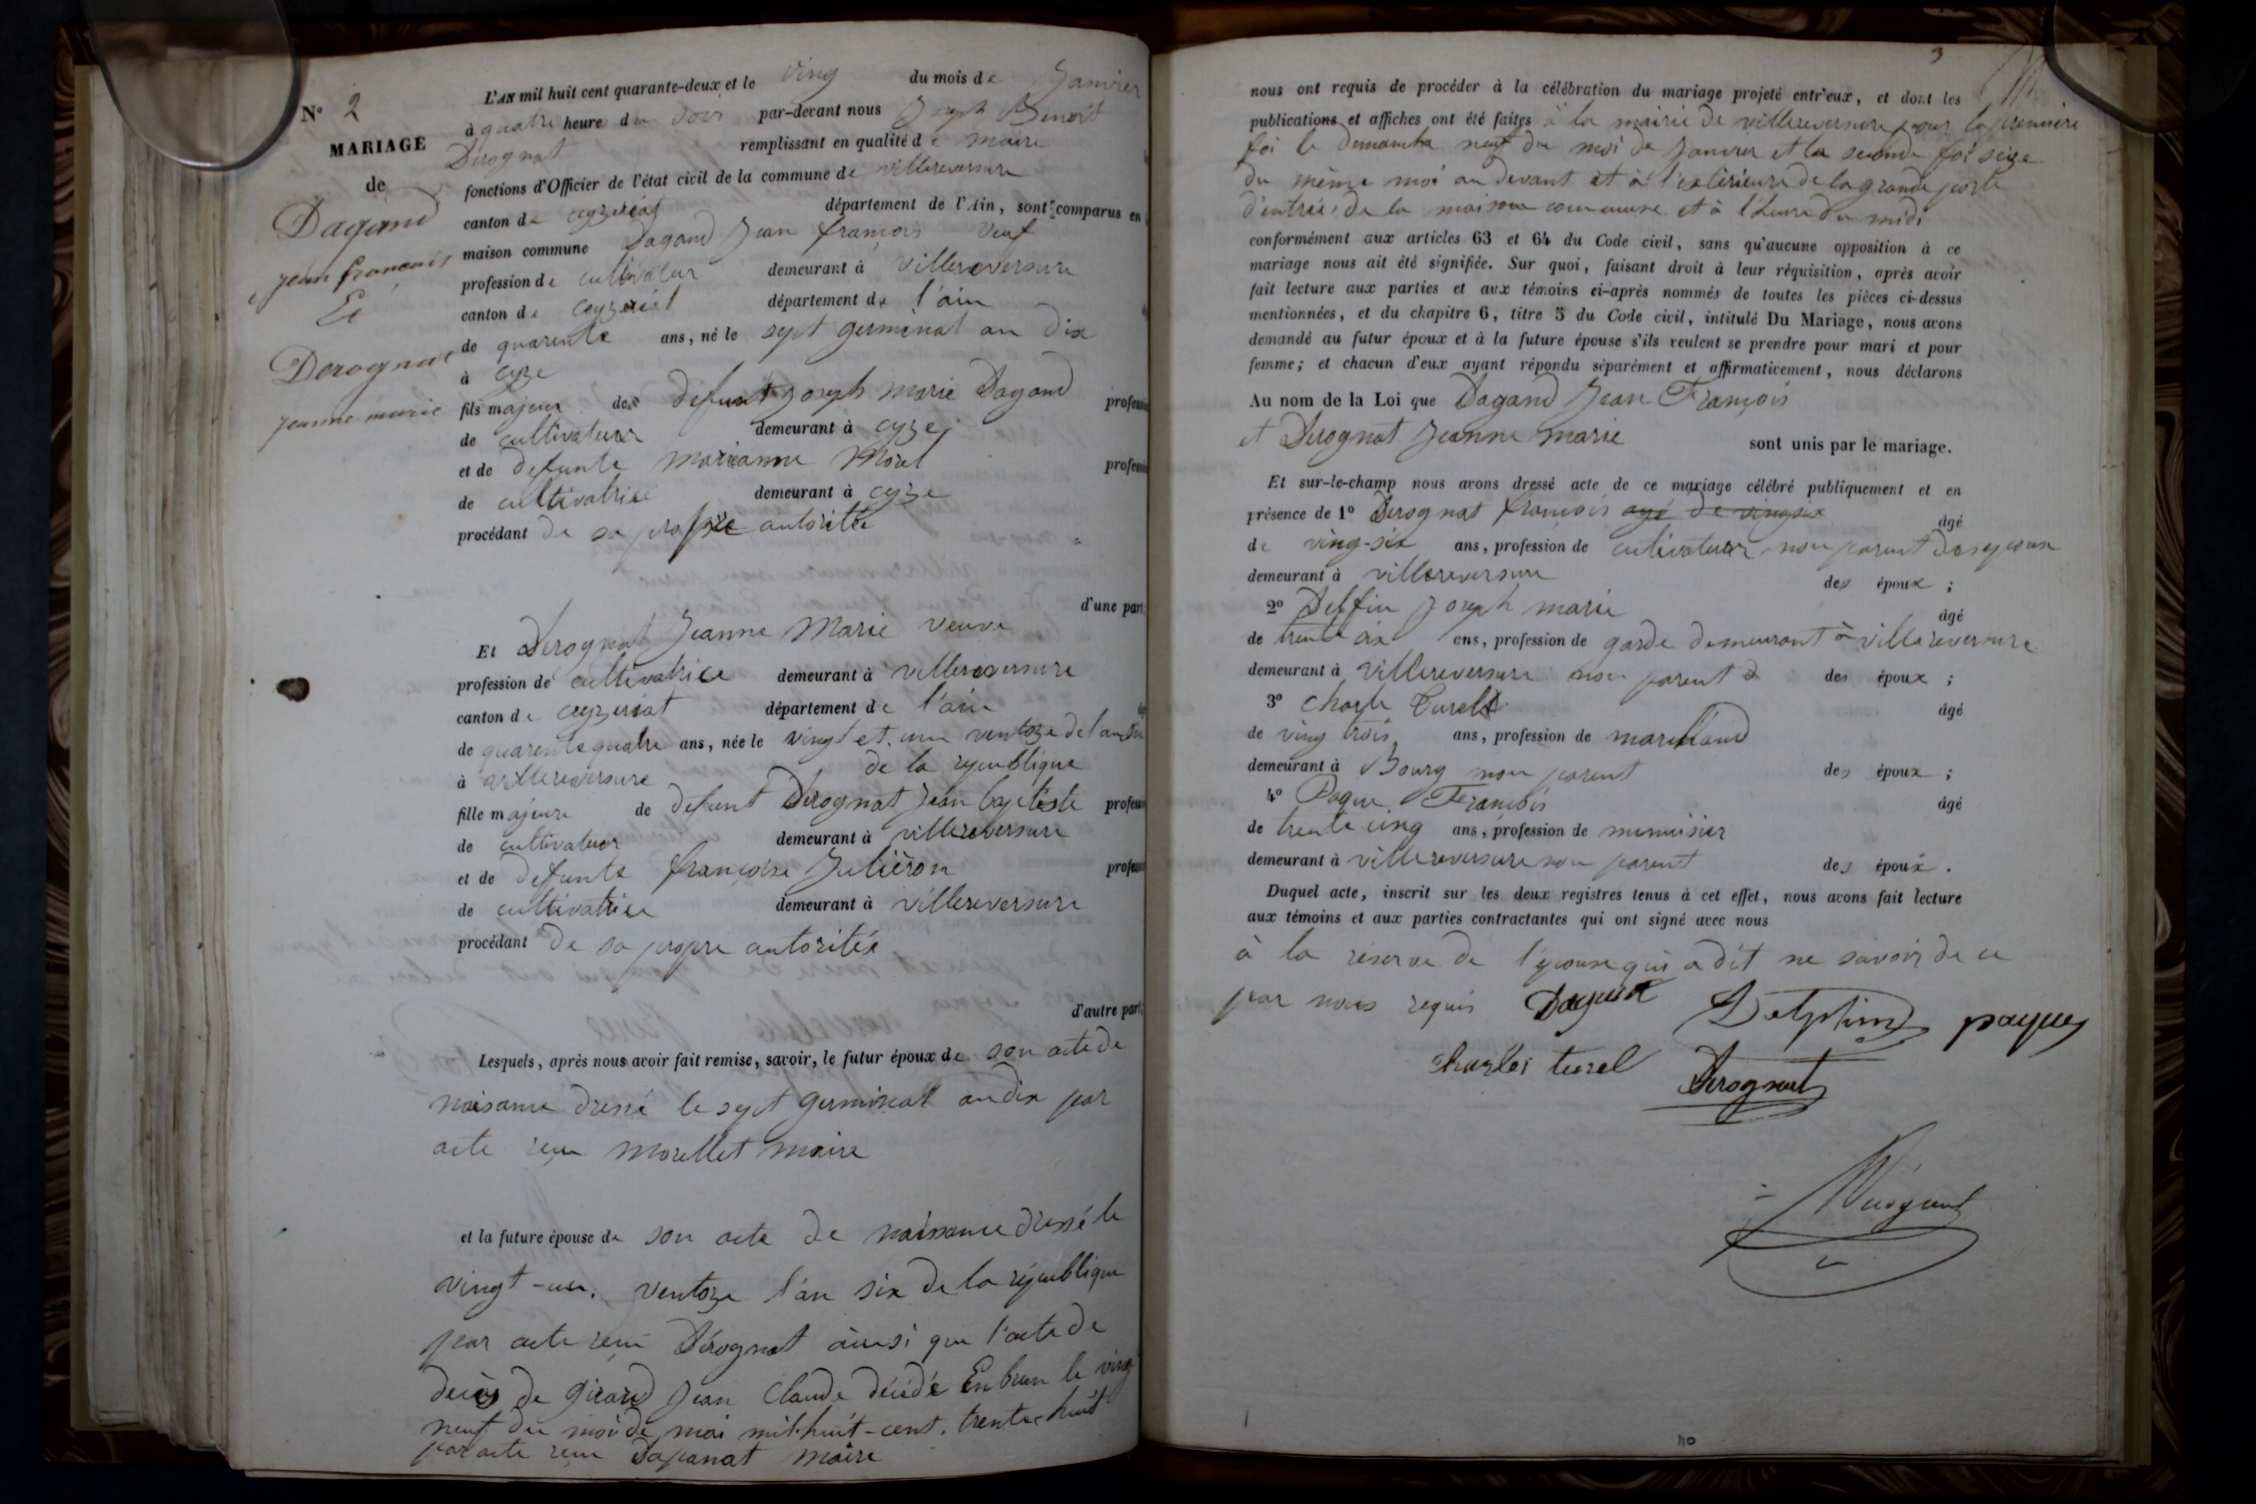 N° 2
MARIAGE
de
Dagand
jean françois
Et
Derognat
jeanne marie
L'AN mil huit cent quarante-deux et le ving du mois de Janvier
à quatre heure du soir par-devant nous Joseph Benoit
Derognat remplissant en qualité de maire
fonctions d'Officier de l'état civil de la commune de villereversure
canton de ceyzeriat département de l'Ain, sont comparus en
maison commune Dagand Jean françois veuf
profession de cultivateur demeurant à villereversure
canton de ceyzeriat département de l'ain
de quarente ans, né le sept germinal an dix
à cyze
fils majeur des defunt joseph marie Dagand profession
de cultivateur demeurant à cyze
et de defunte marianne Morel profession
de cultivatrice demeurant à cyze
procédant de sa propre autoritée
d'une part
Et Derognat Jeanne Marie veuve
profession de cultivatrice demeurant à villereversure
canton de ceyzeriat département de l'ain
de quarente quatre ans, née le vingt et un ventoze de l'an six
de la republique
à villereversure
fille majeure de defunt Derognat Jean baptiste profession
de cultivateur demeurant à villereversure
et de defunte françoise Juliéron profession
de cultivatrice demeurant à villereversure
procédant de sa propre autoritée
d'autre part
Lesquels, après nous avoir fait remise, savoir, le futur époux de son acte de
naisance dressé le sept germinal an dix par
acte reçu Morellet maire
et la future épouse de son acte de naissance dressé le
vingt-un ventoze l'an six de la république
par acte reçu Dérognat ainsi que l'acte de
decés de Girard Jean Claude décédé le ving
neuf du moi de mai mil-huit-cent trente huit
par acte reçu maire
3
nous ont requis de procéder à la célébration du mariage projeté entr'eux, et dont les
publications et affiches ont été faites à la mairie de villereversure pour la premiere
foi le dimanche neuf du moi de Janvier et la seconde foi seize
du même moi au devant et à l'exterieure de la grande porte
d'entrée de la maison commune et à l'heure du midi
conformément aux articles 63 et 64 du Code civil, sans qu'aucune opposition à ce
mariage nous ait été signifiée. Sur quoi, faisant droit à leur réquisition, après avoir
fait lecture aux parties et aux témoins ci-après nommés de toutes les pièces ci-dessus
mentionnées, et du chapitre 6, titre 5 du Code civil, intitulé Du Mariage, nous avons
demandé au futur époux et à la future épouse s'ils veulent se prendre pour mari et pour
femme; et chacun d'eux ayant répondu séparément et affirmativement, nous déclarons
Au nom de la Loi que Dagand Jean François
et Derognat Jeanne marie sont unis par le mariage.
Et sur-le-champ nous avons dressé acte de ce mariage célébré publiquement et en
présence de 1° Derognat françois agé de ving six âgé
de ving-six ans, profession de cultivateur non parent des epoux
demeurant à villereversure des époux;
2° Delfin Joseph marie âgé
de trente six ans, profession de garde demeurant à villereversure
demeurant à villereversure non parent d des époux;
3° Charle Curel âgé
de ving trois ans, profession de marchand
demeurant à Bourg non parent des époux;
4° Paque François âgé
de trente cinq ans, profession de menuisier
demeurant à villereversure non parent des époux.
Duquel acte, inscrit sur les deux registres tenus à cet effet, nous avons fait lecture
aux témoins et aux parties contractantes qui ont signé avec nous
à la réserve de l'épouse qui a dit ne savoir de ce
par nous requis Dagand Delphin paques
Charles Curel Derognat
Derognat
110